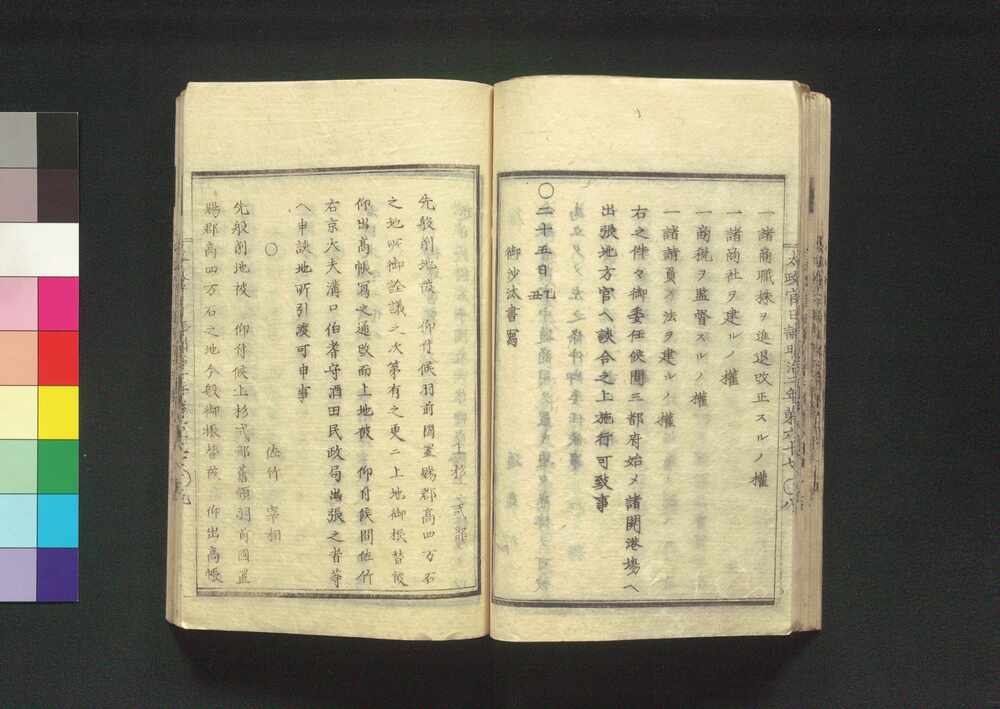 一諸商職株ヲ進退改正スルノ權
一諸商社ヲ建ルノ權
一商税ヲ監督スルノ權
一諸請負ノ法ヲ建ルノ權
右之件々御委任候間三都府始メ諸開港場ヘ
出張地方官ヘ談合之上施行可致事
〇二十五日乙丑
御沙汰書寫
太政官日誌明治二年第六十七 〇八
上杉式部
先般削地被 仰付候羽前國置賜郡高四万石
之地所御詮議之次第有之更ニ上地御振替被
仰出髙帳寫之通改而上地被 仰付候間佐竹
右京大夫溝口伯耆守酒田民政局出張之者等
ヘ申談地所引渡可申事
〇
佐竹宰相
先般削地被 仰付候上杉式部舊領羽前國置
賜郡高四万石之地今般御振替被 仰出高帳